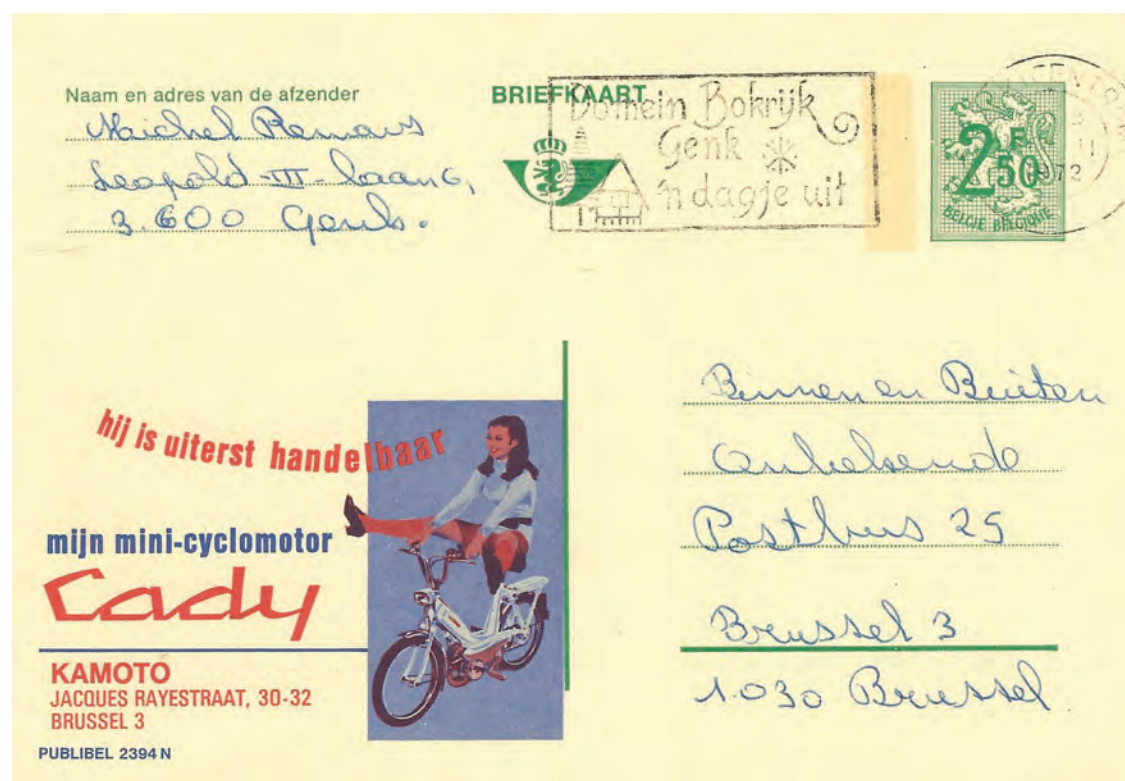 Naam en adres van de afzender
Michel Remans
Leopold-III-laan 6,
3.600 Genk.
BRIEFKAART
Domein Bokrijk
Genk
'n dagje uit
1972
2F50
BELGIE BELGIQUE
hij is uiterst handelbaar
mijn mini-cyclomotor
Cady
KAMOTO
JACQUES RAYESTRAAT, 30-32
BRUSSEL 3
PUBLIBEL 2394 N
Binnen en Buiten
Postbus 25
Brussel 3
1.030 Brussel